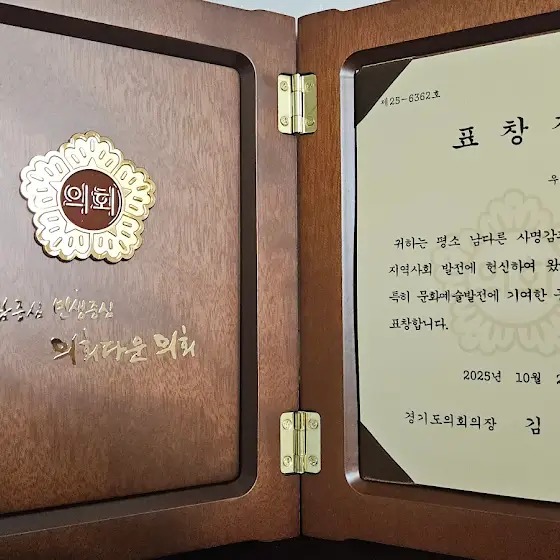 의회
사람중심 민생중심
의회다운 의회
제25-6362호
표 창
우
위하는 평소 남다른 사명감
지역사회 발전에 헌신하여 왔
특히 문화예술발전에 기여한
표창합니다.
2025년 10월 2
경기도의회의장 김